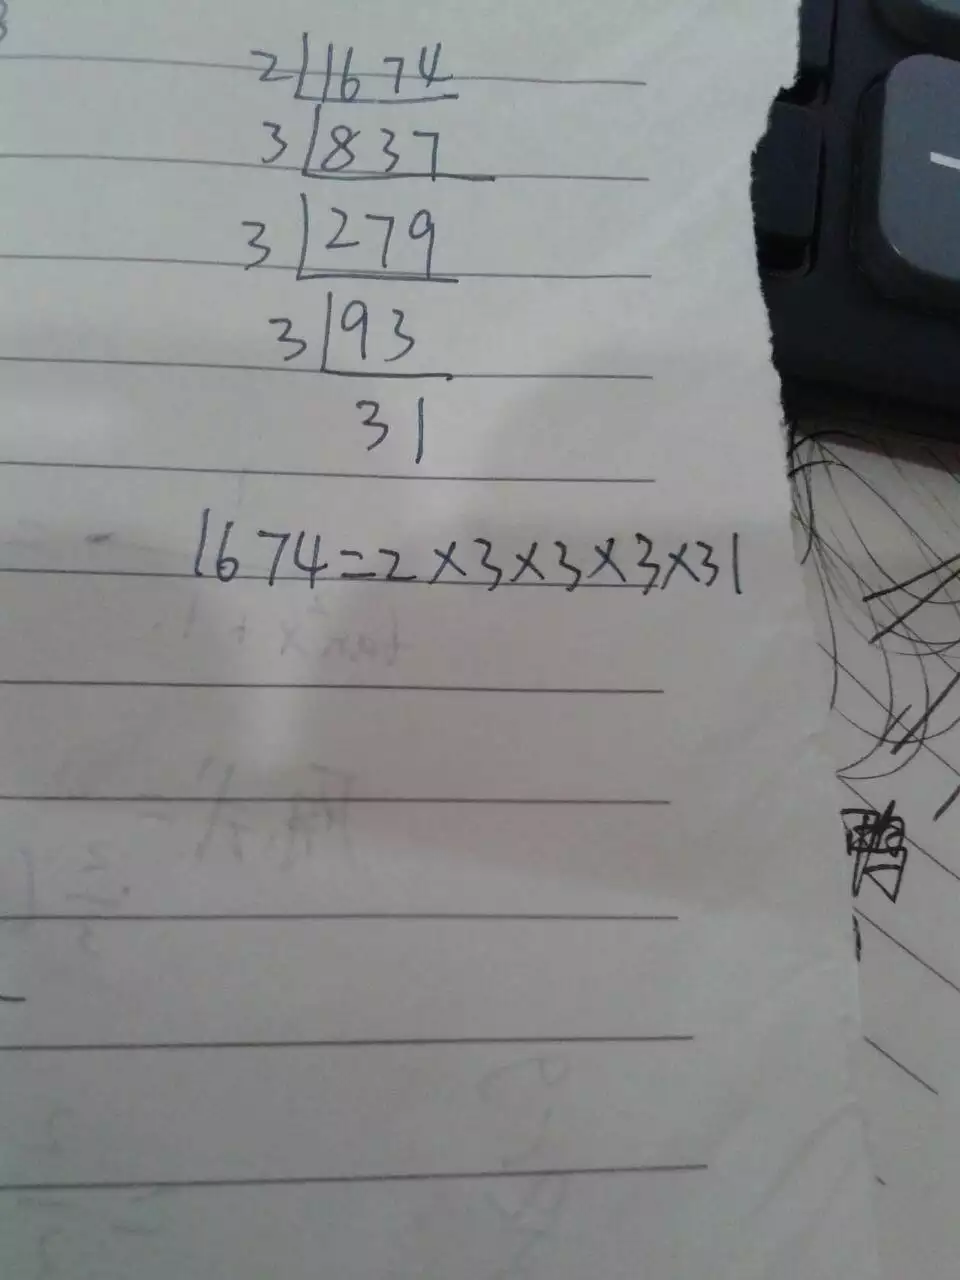 2 1674
3 837
3 279
3 93
31
1674=2×3×3×3×31